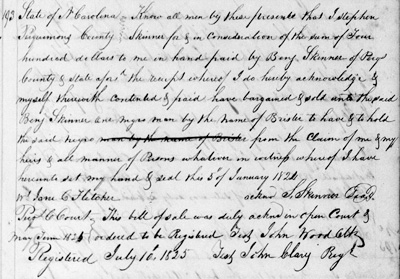 193 State of N Carolina Know all men by these presents that I Stephen
Perquimons County Skinner for & in Consideration of the sum of Four
hundred dollars to me in hand paid by Benj Skinner of Perq
County & State afors. the receipt whereof I do hereby acknowledge &
myself therewith Contented & paid have bargained & sold unto the said
Benj Skinner one negro man by the name of Brister to have & to hold
the said negro man by the name of Brister from the Claim of me & my
heirs & all manner of Persons whatever in witness whereof I have
hereunto set my hand & seal this 5th of January 1824
wt Jane C Fletcher acknd S. Skinner Seal
Perq C Court, This bill of sale was duly acknd in open Court &
May Term 1825 ordered to be Registered Test John Wood Clk
Registered July 16, 1825 Test John Clary Regr